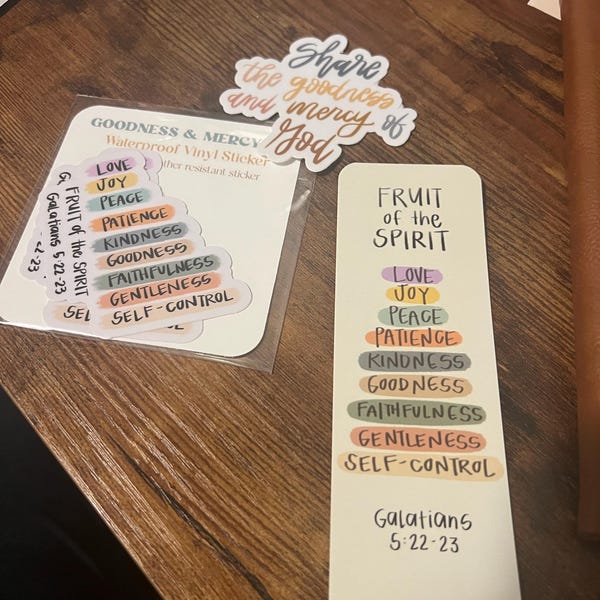 Share
the goodness
and mercy of
God
GOODNESS & MERCY
Waterproof Vinyl Sticker
ther resistant sticker
LOVE
JOY
PEACE
PATIENCE
KINDNESS
GOODNESS
FAITHFULNESS
GENTLENESS
SELF-CONTROL
FRUIT of the SPIRIT
Galatians 5:22-23
G
-23
SEL
FRUIT
of the
SPIRIT
LOVE
JOY
PEACE
PATIENCE
KINDNESS
GOODNESS
FAITHFULNESS
GENTLENESS
SELF-CONTROL
Galatians
5:22-23